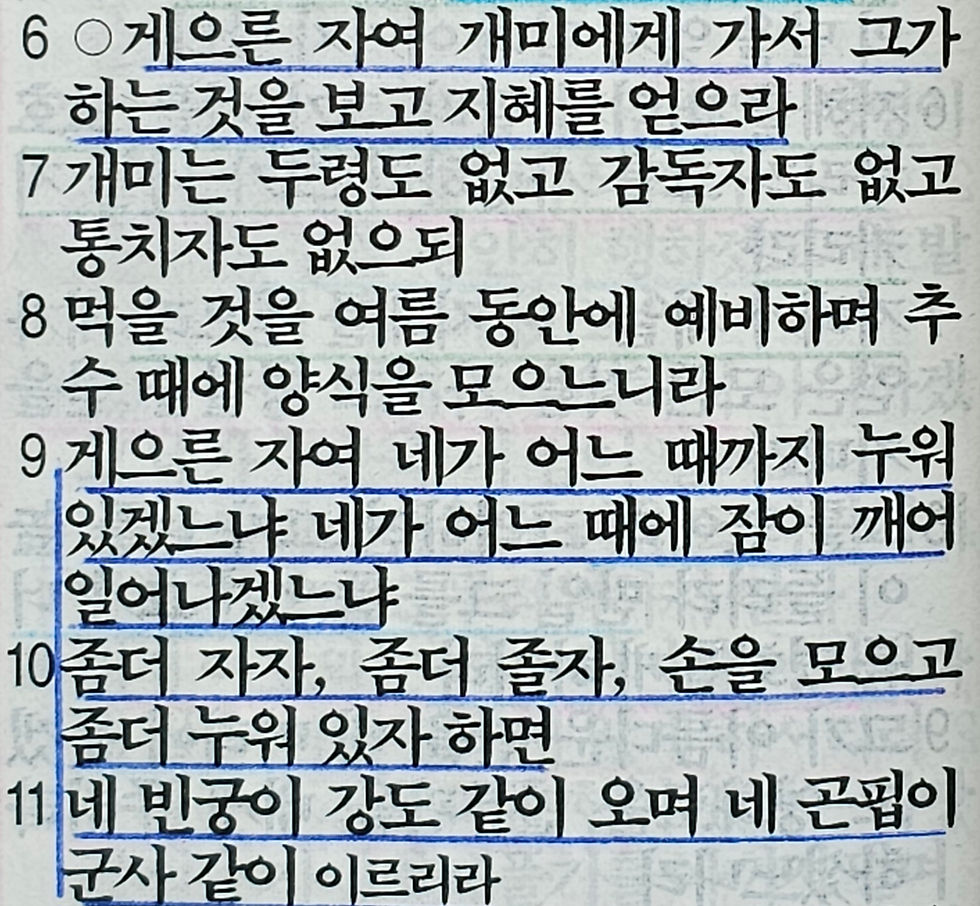 6 ○게으른 자여 개미에게 가서 그가
하는 것을 보고 지혜를 얻으라
7 개미는 두령도 없고 감독자도 없고
통치자도 없으되
8 먹을 것을 여름 동안에 예비하며 추
수 때에 양식을 모으느니라
9 게으른 자여 네가 어느 때까지 누워
있겠느냐 네가 어느 때에 잠이 깨어
일어나겠느냐
10 좀더 자자, 좀더 졸자, 손을 모으고
좀더 누워 있자 하면
11 네 빈궁이 강도 같이 오며 네 곤핍이
군사 같이 이르리라